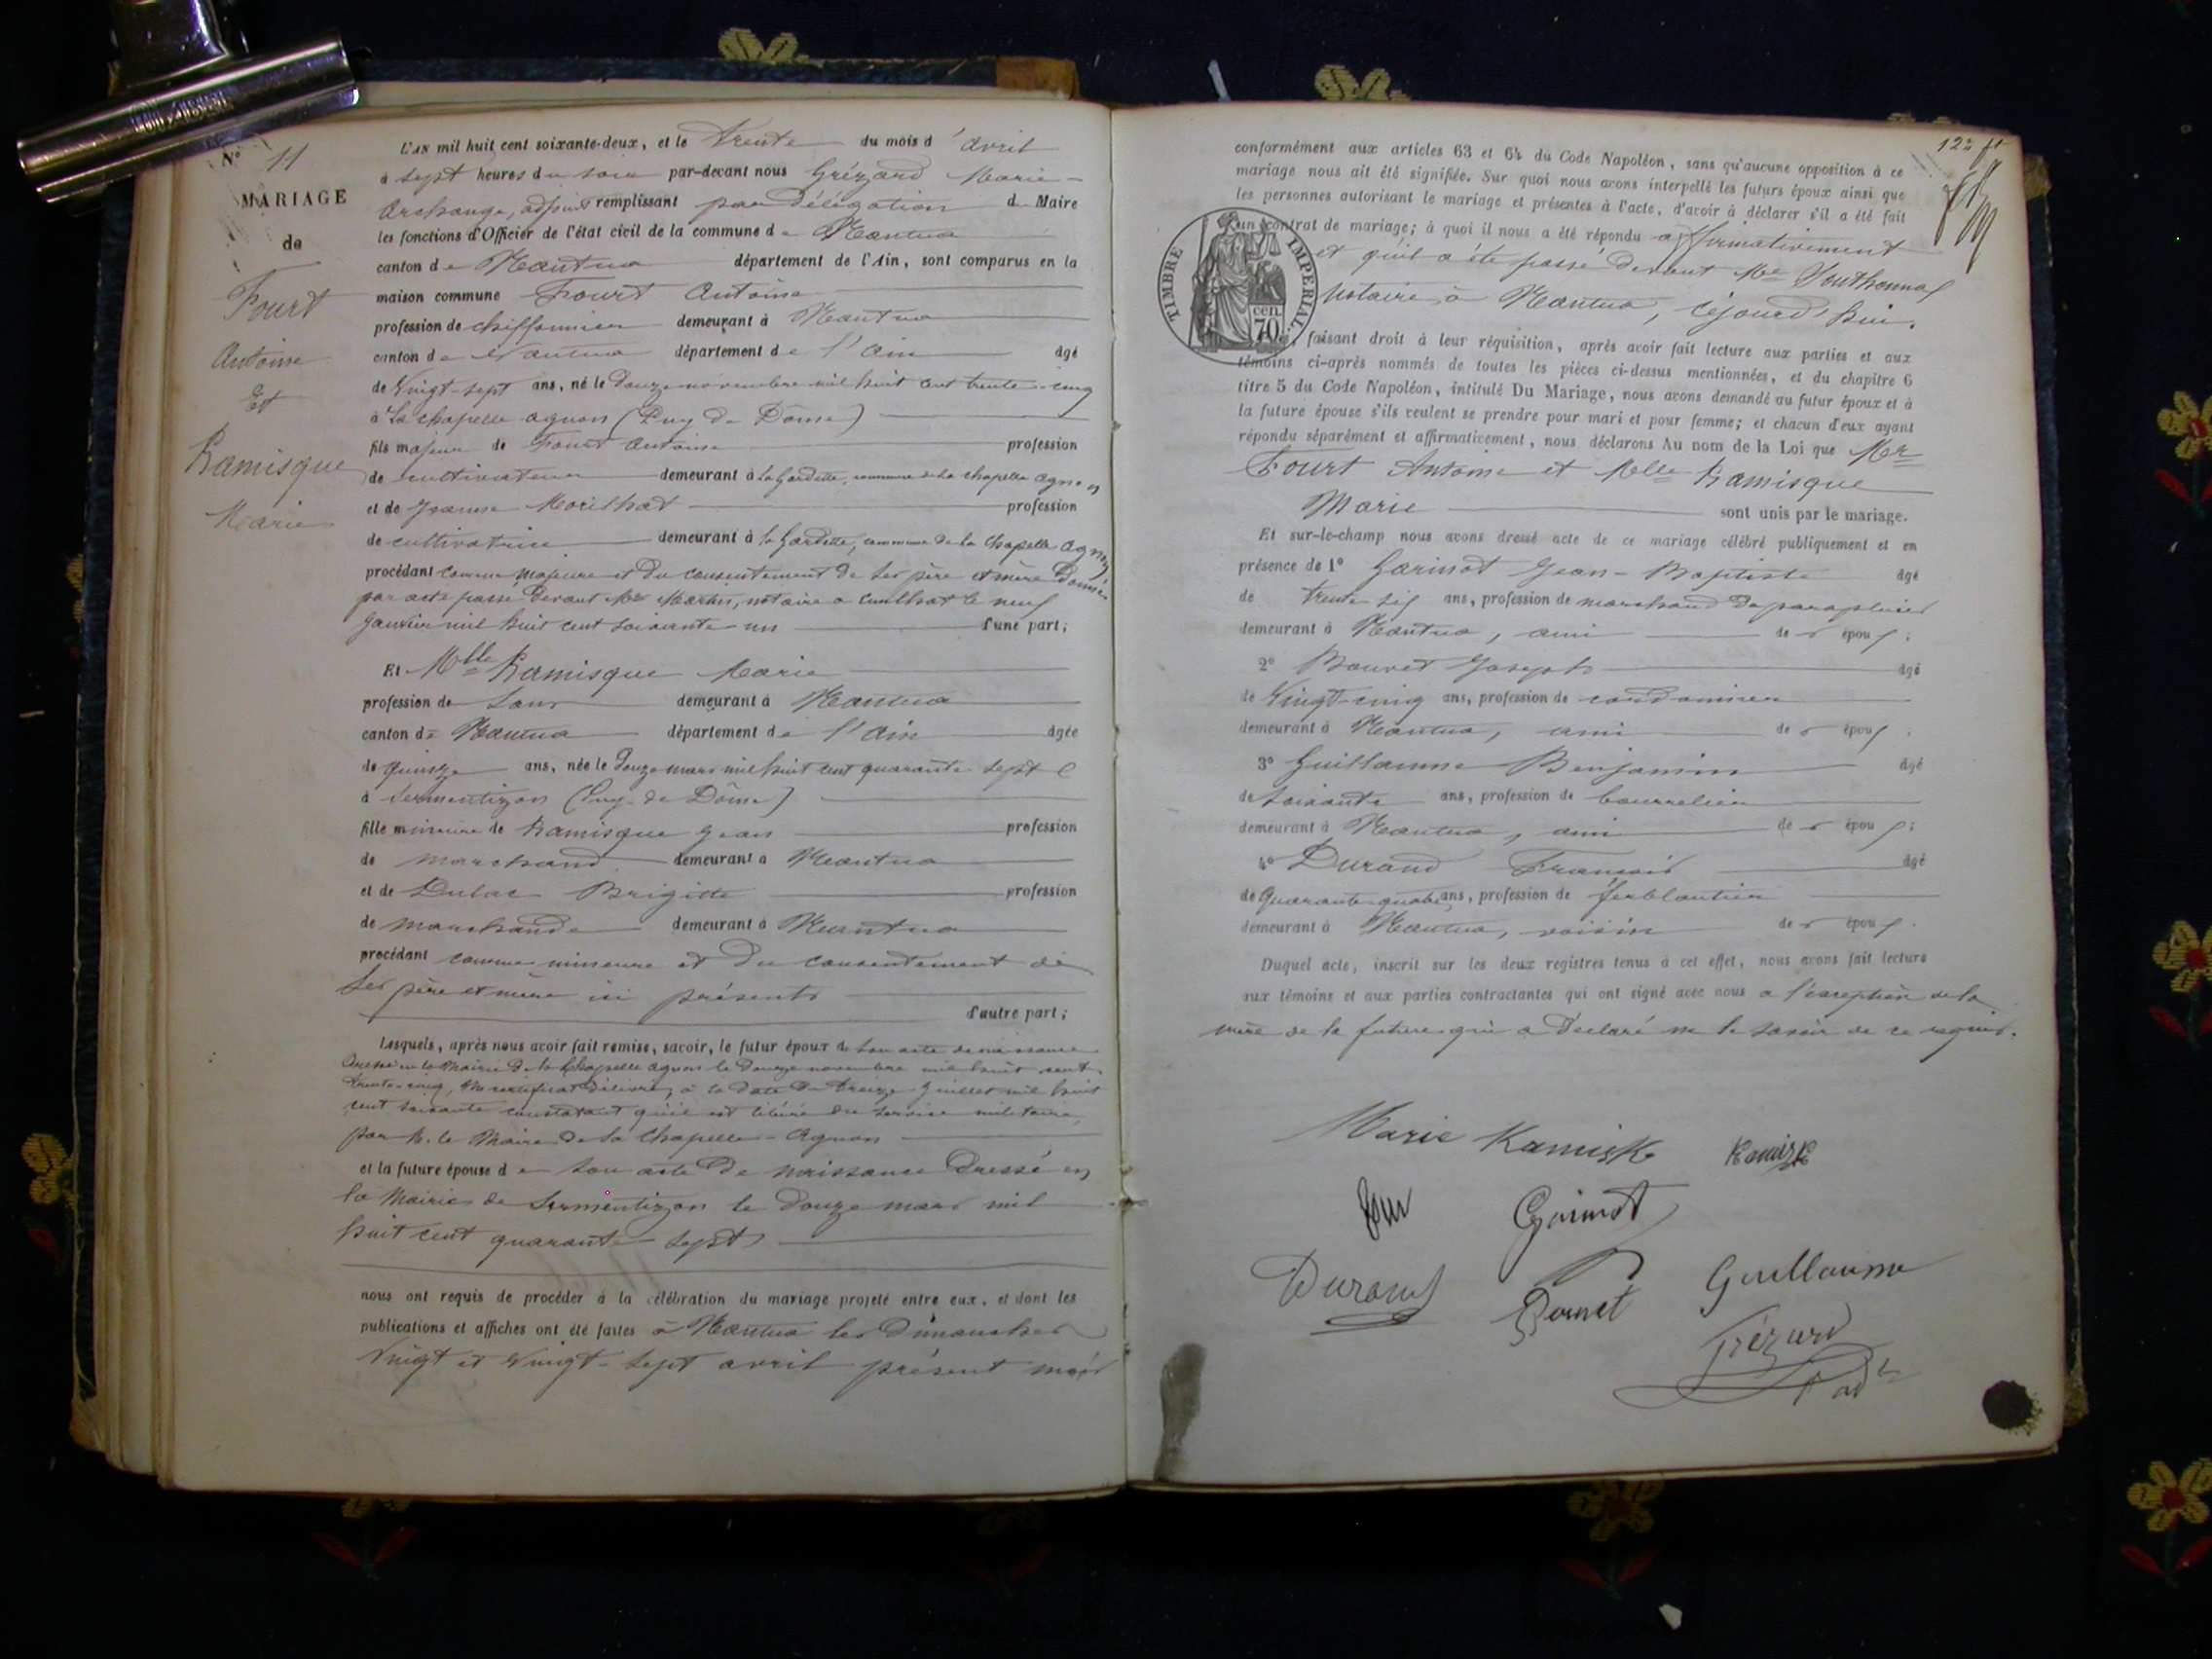 N° 11
MARIAGE
de
Fourt
Antoine
Et
Ramisque
Marie
L'AN mil huit cent soixante-deux, et le trente du mois d'avril
à sept heures du soir par-devant nous Grézard Marie-
Archange, adjoint remplissant par délégation du Maire
les fonctions d'Officier de l'état civil de la commune de Nantua
canton de Nantua département de l'Ain, sont comparus en la
maison commune Fourt Antoine
profession de chiffonnier demeurant à Nantua
canton de Nantua département de l'Ain âgé
de Vingt-sept ans, né le douze novembre mil huit cent trente-cinq
à La chapelle agnon (Puy de Dôme)
fils majeur de Fourt Antoine profession
de cultivateur demeurant à la Gardette, commune de la chapelle agnon
et de Jeanne Morilhat profession
de cultivatrice demeurant à la Gardette, commune de la Chapelle Agnon
procédant comme majeure et du consentement de ses père et mère donné
par acte passé devant Me Martin, notaire a cunlhat le neuf
Janvier mil huit cent soixante un d'une part;
Et Mlle Ramisque Marie
profession de sans demeurant à Nantua
canton de Nantua département de l'Ain âgée
de quinze ans, née le douze mars mil huit cent quarante sept
à Sermentizon (Puy-de Dôme)
fille mineure de Ramisque Jean profession
de marchand demeurant à Nantua
et de Dulac Brigitte profession
de marchande demeurant à Nantua
procédant comme mineure et du consentement de
ses père et mère ici présents
d'autre part;
Lesquels, après nous avoir fait remise, savoir, le futur époux de son acte de naissance
dressé en la Mairie de la Chapelle agnon le douze novembre mil huit cent
trente-cinq, un certificat délivré, à la date du treize Juillet mil huit
cent soixante constatant qu'il est libéré du service militaire
par M. le Maire de la Chapelle-Agnon
et la future épouse de son acte de naissance dressé en
la Mairie de Sermentizon le douze mars mil
huit cent quarante-sept
nous ont requis de procéder à la célébration du mariage projeté entre eux, et dont les
publications et affiches ont été faites à Nantua les dimanches
vingt et vingt-sept avril présent mois
conformément aux articles 63 et 64 du Code Napoléon, sans qu'aucune opposition à ce
mariage nous ait été signifiée. Sur quoi nous avons interpellé les futurs époux ainsi que
les personnes autorisant le mariage et présentes à l'acte, d'avoir à déclarer s'il a été fait
un contrat de mariage; à quoi il nous a été répondu affirmativement
et qu'il a été passé devant Me
Notaire à Nantua, cejourd'hui.
TIMBRE IMPERIAL
70 cen.
faisant droit à leur réquisition, après avoir fait lecture aux parties et aux
témoins ci-après nommés de toutes les pièces ci-dessus mentionnées, et du chapitre 6
titre 5 du Code Napoléon, intitulé Du Mariage, nous avons demandé au futur époux et à
la future épouse s'ils veulent se prendre pour mari et pour femme; et chacun d'eux ayant
répondu séparément et affirmativement, nous déclarons Au nom de la Loi que Mr
Fourt Antoine et Melle Ramisque
Marie sont unis par le mariage.
Et sur-le-champ nous avons dressé acte de ce mariage célébré publiquement et en
présence de 1° Garinot Jean-Baptiste âgé
de trente six ans, profession de marchand de parapluies
demeurant à Nantua, ami des époux;
2° Bouvet Joseph âgé
de Vingt-cinq ans, profession de cordonnier
demeurant à Nantua, ami des époux;
3° Guillaume Benjamin âgé
de soixante ans, profession de bourrelier
demeurant à Nantua, ami des époux;
4° Durand François âgé
de quarante-quatre ans, profession de ferblantier
demeurant à Nantua, voisin des époux.
Duquel acte, inscrit sur les deux registres tenus à cet effet, nous avons fait lecture
aux témoins et aux parties contractantes qui ont signé avec nous à l'exception de la
mère de la future qui a déclaré ne le savoir de ce requis.
Marie Kamisk
Garinot
Durand
Guillaume
Grézard